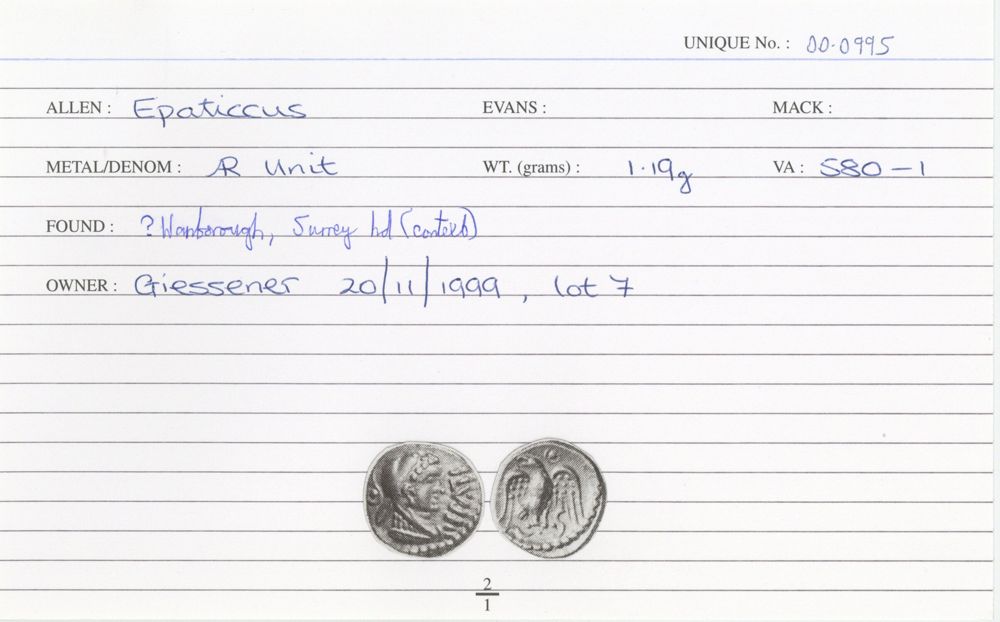 UNIQUE No. : 00·0995
ALLEN : Epaticcus EVANS : MACK :
METAL/DENOM : AR Unit WT. (grams) : 1·19g VA : 580-1
FOUND : ? Wanborough, Surrey hd
OWNER : Giessener 20/11/1999, lot 7
2
1